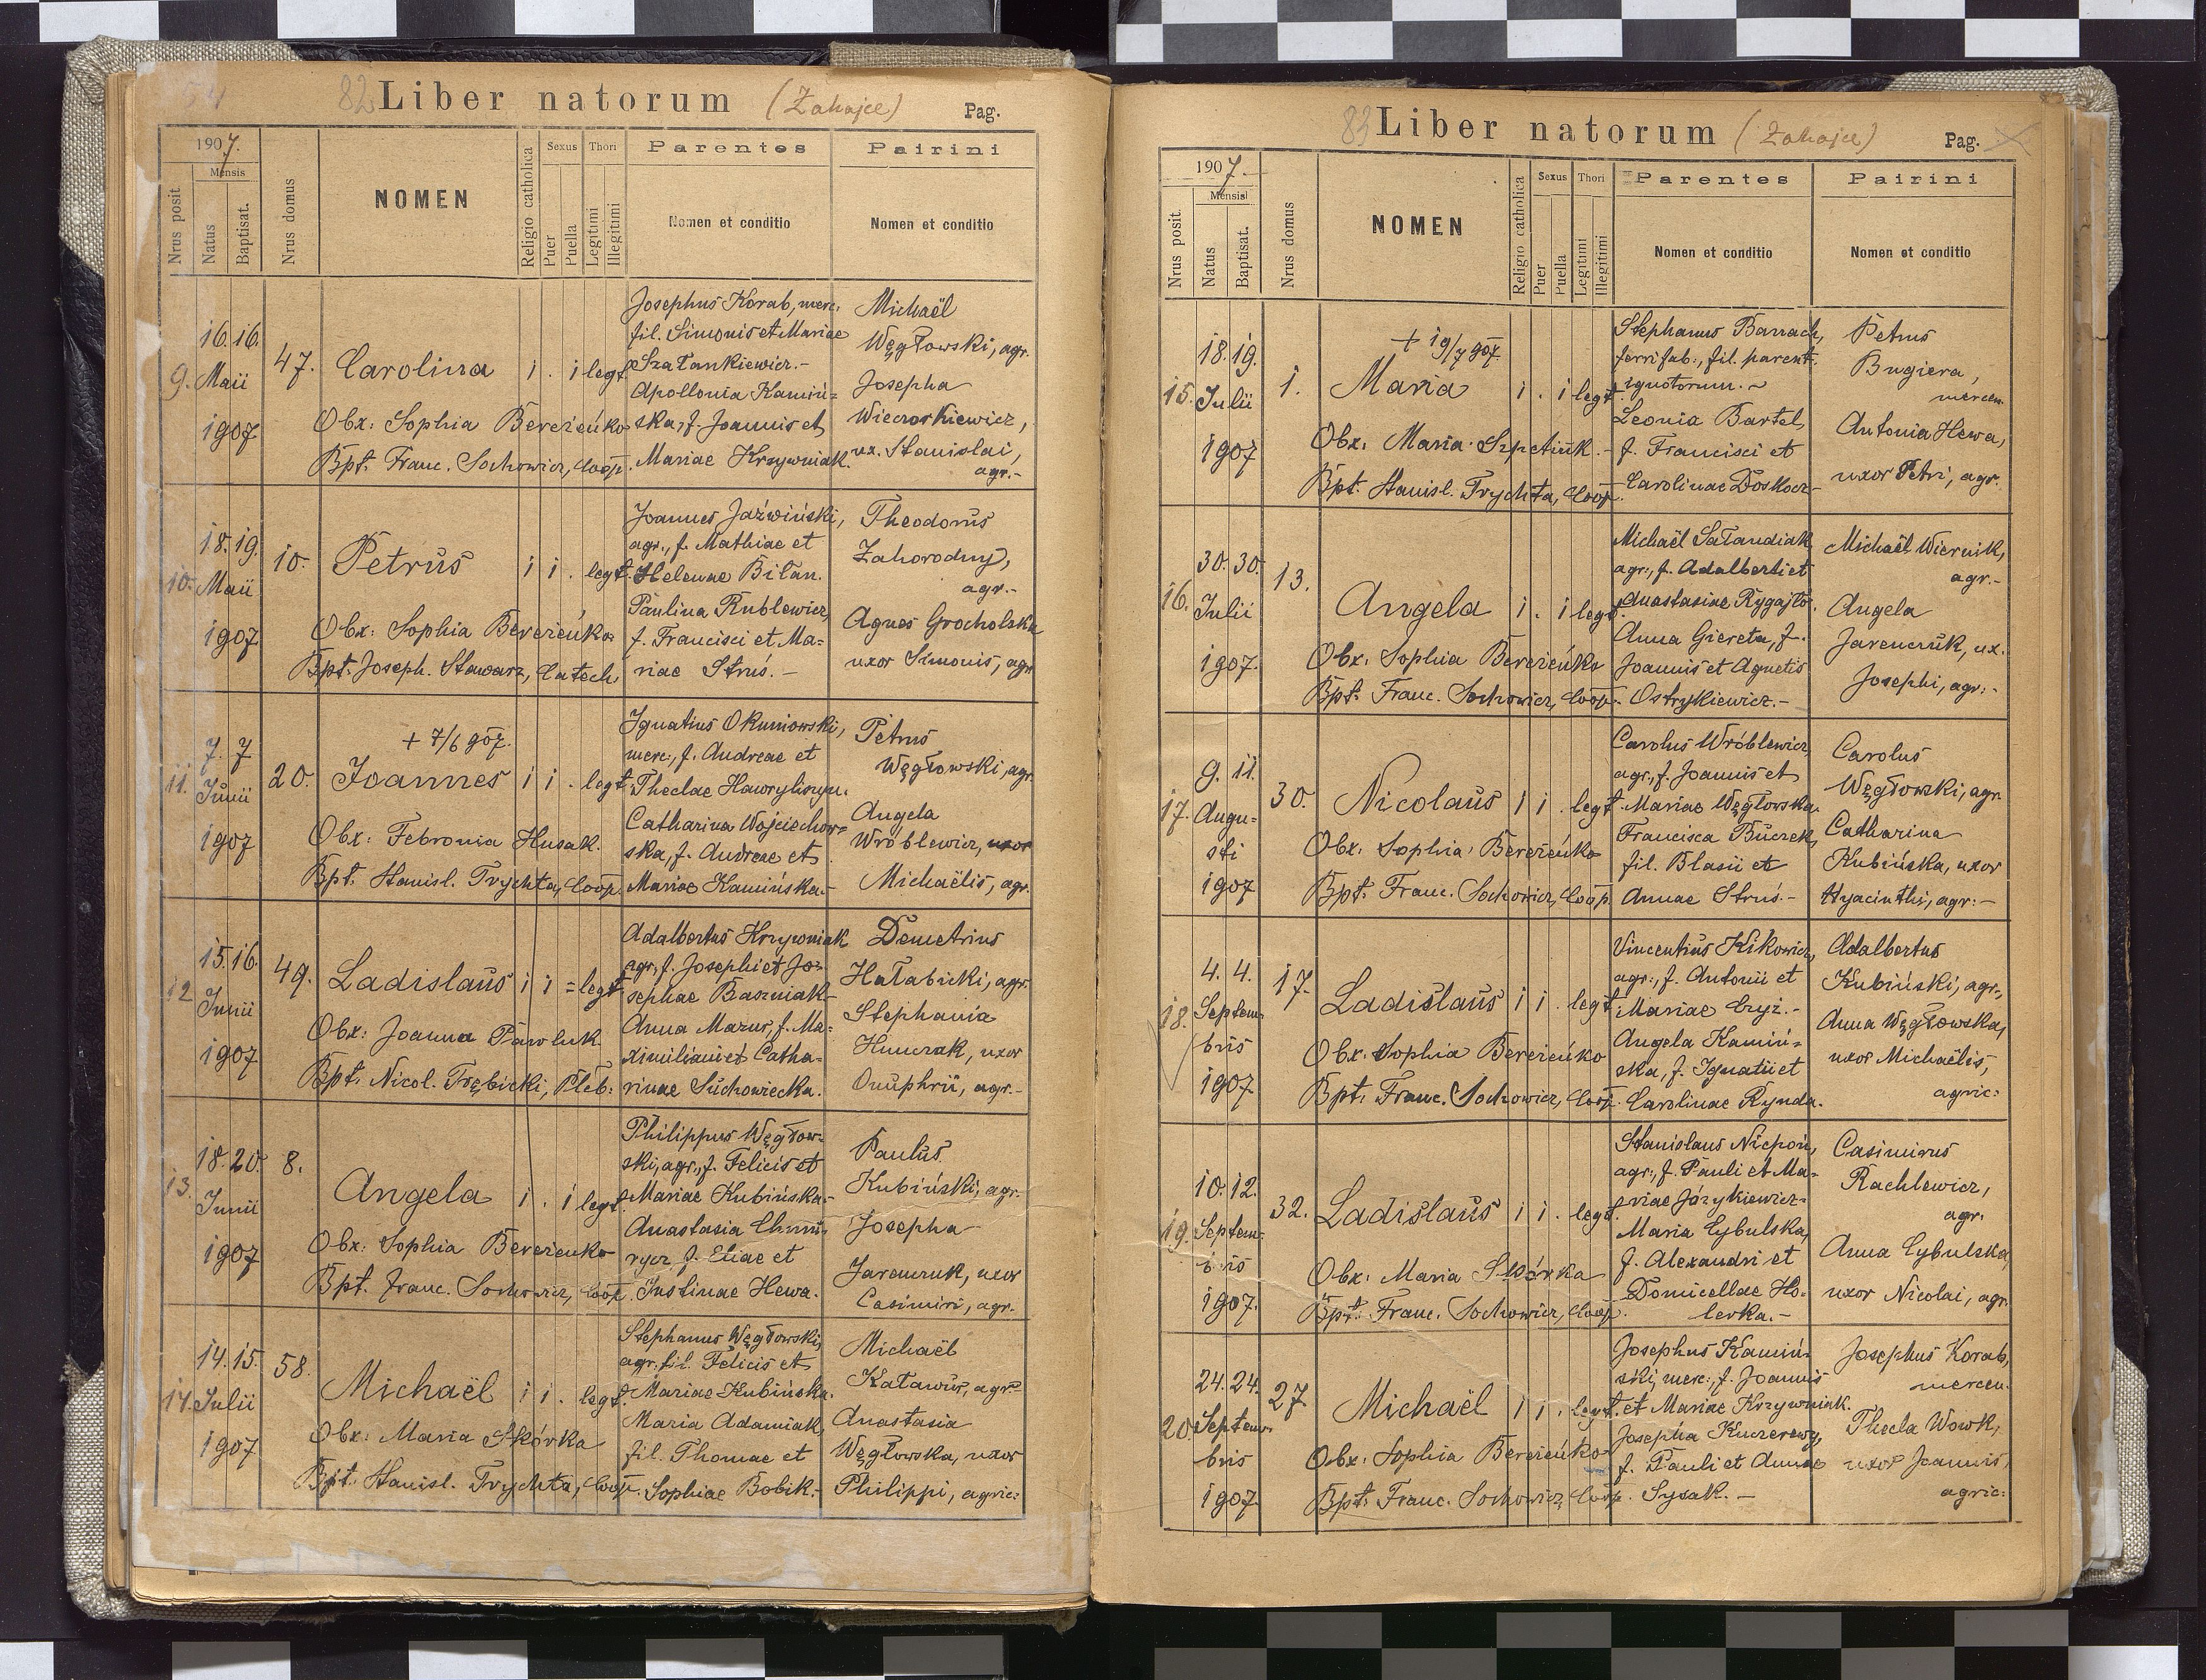 82 Liber natorum (Zahajce) Pag.
1907.
Mensis
Nrus posit
Natus
Baptisat.
Nrus domus
NOMEN
Religio catholica
Sexus
Puer
Puella
Thori
Legitimi
Illegitimi
Parentes
Nomen et conditio
Pairini
Nomen et conditio
9.
16. 16.
Maii
1907
47.
Carolina
1 . 1 legt.
Obx: Sophia Bereżeńko
Bpt. Franc. Sochowicz, Coop.
Josephus Korab, merc.
fil. Simonis et Mariae
Szałankiewicz.-
Apollonia Kamiń=
ska, f. Joannis et
Mariae Krzywniak.
Michaël
Węgłowski, agr.
Josepha
Wieczorkiewicz,
ux. Stanislai,
agr.-
10.
18. 19.
Maii
1907
10.
Petrus
1 1 . legt.
Obx: Sophia Bereżeńko
Bpt. Joseph. Stawarz, Catech
Joannes Jaźwiński,
agr., f. Mathiae et
Helenae Bilan.
Paulina Rublewicz,
f. Francisci et Ma=
riae Struś.-
Theodorus
Zahorodny,
agr.-
Agnes Grocholska
uxor Simonis, agr.
11.
7. 7
Junii
1907
20.
+ 7/6 907.
Joannes
1 1 . legt.
Obx: Febronia Husak.
Bpt. Stanisl. Trychta, Coop.
Ignatius Okuniowski,
merc., f. Andreae et
Theclae Hawryliszyn.
Catharina Wojciechow=
ska, f. Andreae et
Mariae Kamińska.-
Petrus
Węgłowski, agr.
Angela
Wróblewicz, uxor
Michaëlis, agr.
12
15. 16.
Junii
1907
49.
Ladislaus
1 1 = legt.
Obx: Joanna Pawluk
Bpt. Nicol. Trębicki, Pleb:
Adalbertus Krzywniak
agr., f. Josephi et Jo=
sephae Baszniak-
Anna Mazur, f. Ma=
ximiliani et Catha=
rinae Suchowiecka.
Demetrius
Hałabicki, agr.
Stephania
Humczak, uxor
Onuphrii, agr.-
13.
18. 20.
Junii
1907
8.
Angela
1 . 1 legt.
Obx: Sophia Bereżeńko
Bpt. Franc. Sochowicz, Coop.
Philippus Węgłow=
ski, agr., f. Felicis et
Mariae Kubińska-
Anastasia
f. Eliae et
Justinae Hewa.
Paulus
Kubiński, agr.
Josepha
Jaremczuk, uxor
Casimiri, agr.
14.
14. 15.
Julii
1907
58.
Michaël
1 1 . legt.
Obx: Maria Skórka
Bpt. Stanisl. Trychta, Coop.
Stephanus Węgłowski,
agr. fil. Felicis et
Mariae Kubińska.
Maria Adamiak,
fil. Thomae et
Sophiae Bobik.-
Michaël
Kaławur, agr.
Anastasia
Węgłowska, uxor
Philippi, agric:
83 Liber natorum (Zahajce) Pag.
1907.-
Mensis
Nrus posit
Natus
Baptisat.
Nrus domus
NOMEN
Religio catholica
Sexus
Puer
Puella
Thori
Legitimi
Illegitimi
Parentes
Nomen et conditio
Pairini
Nomen et conditio
15.
18. 19.
Julii
1907
1.
+ 19/7 907.
Maria
1 . 1 legt.
Obx: Maria Szpetiuk.-
Bpt. Stanisl. Trychta, Coop.
Stephanus Barrach,
ferrifab:, fil. parent.
ignotorum.-
Leonia Bartel,
f. Francisci et
Carolinae Doskocz-
Petrus
Bugiera,
mercen.
Antonia Hewa,
uxor Petri, agr.
16.
30. 30.
Julii
1907.
13.
Angela
1. 1 legt.
Obx: Sophia Bereżeńko
Bpt. Franc. Sochowicz, Coop.
Michaël Sałandiak,
agr., f. Adalberti et
Anastasiae Rygajło.
Anna Giereta, f.
Joannis et Agnetis
Ostrykiewicz.-
Michaël Wiernik,
agr.-
Angela
Jaremczuk, ux.
Josephi, agr.-
17.
9. 11.
Augu-
sti
1907
30.
Nicolaus
1 1 . legt.
Obx: Sophia Bereżeńko
Bpt. Franc. Sochowicz, Coop
Carolus Wróblewicz,
agr., f. Joannis et
Mariae Węgłowska.
Francisca Buczek,
fil. Blasii et
Annae Struś.-
Carolus
Węgłowski, agr.
Catharina
Kubińska, uxor
Hyacinthi, agr:-
18.
4. 4.
Septem-
bris
1907
17.
Ladislaus
1 1 . legt.
Obx: Sophia Bereżeńko
Bpt. Franc. Sochowicz, Coop.
Vincentius Kikowicz,
agr., f. Antonii et
Mariae Czyż.-
Angela Kamiń=
ska, f. Ignatii et
Carolinae Rynda.
Adalbertus
Kubiński, agr.,
Anna Węgłowska,
uxor Michaëlis,
agric:
19.
10. 12.
Septem-
bris
1907.
32.
Ladislaus
1 1 . legt.
Obx: Maria Skórka
Bpt. Franc. Sochowicz, Coop.
Stanislaus Niepoń,
agr., f. Pauli et Ma=
riae Józykiewicz-
Maria Cybulska,
f. Alexandri et
Domicellae Ho=
lerka.-
Casimirus
Rachlewicz,
agr.
Anna Cybulska,
uxor Nicolai, agr.
20.
24. 24.
Septem-
bris
1907.
27
Michaël
1 1 . legt.
Obx: Sophia Bereżeńko
Bpt. Franc. Sochowicz, Coop.
Josephus Kamiń-
ski, merc., f. Joannis
et Mariae Krzywniak.
Josepha Kuczerewy,
f. Pauli et Annae
Sysak.-
Josephus Korab,
mercen.
Thecla Wowk,
uxor Joannis,
agric: